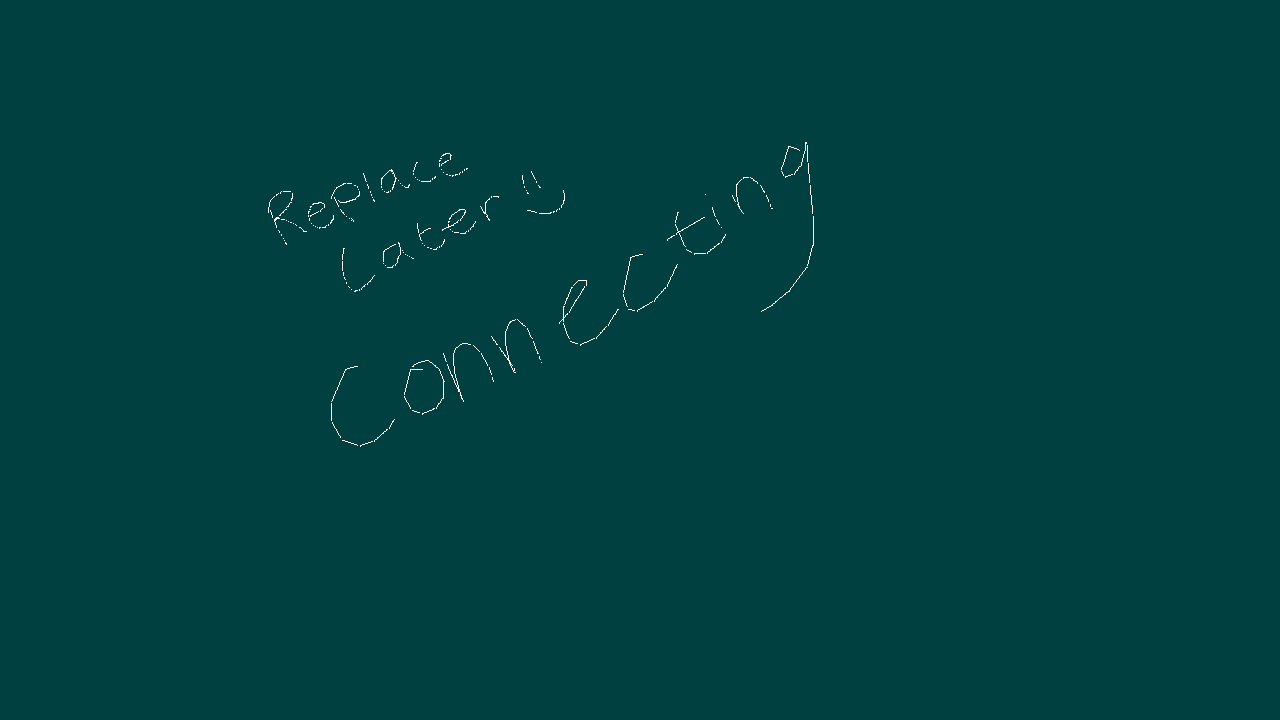 Replace
Later :)
Connecting